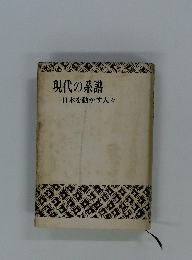 現代の系譜
日本を動かす人々